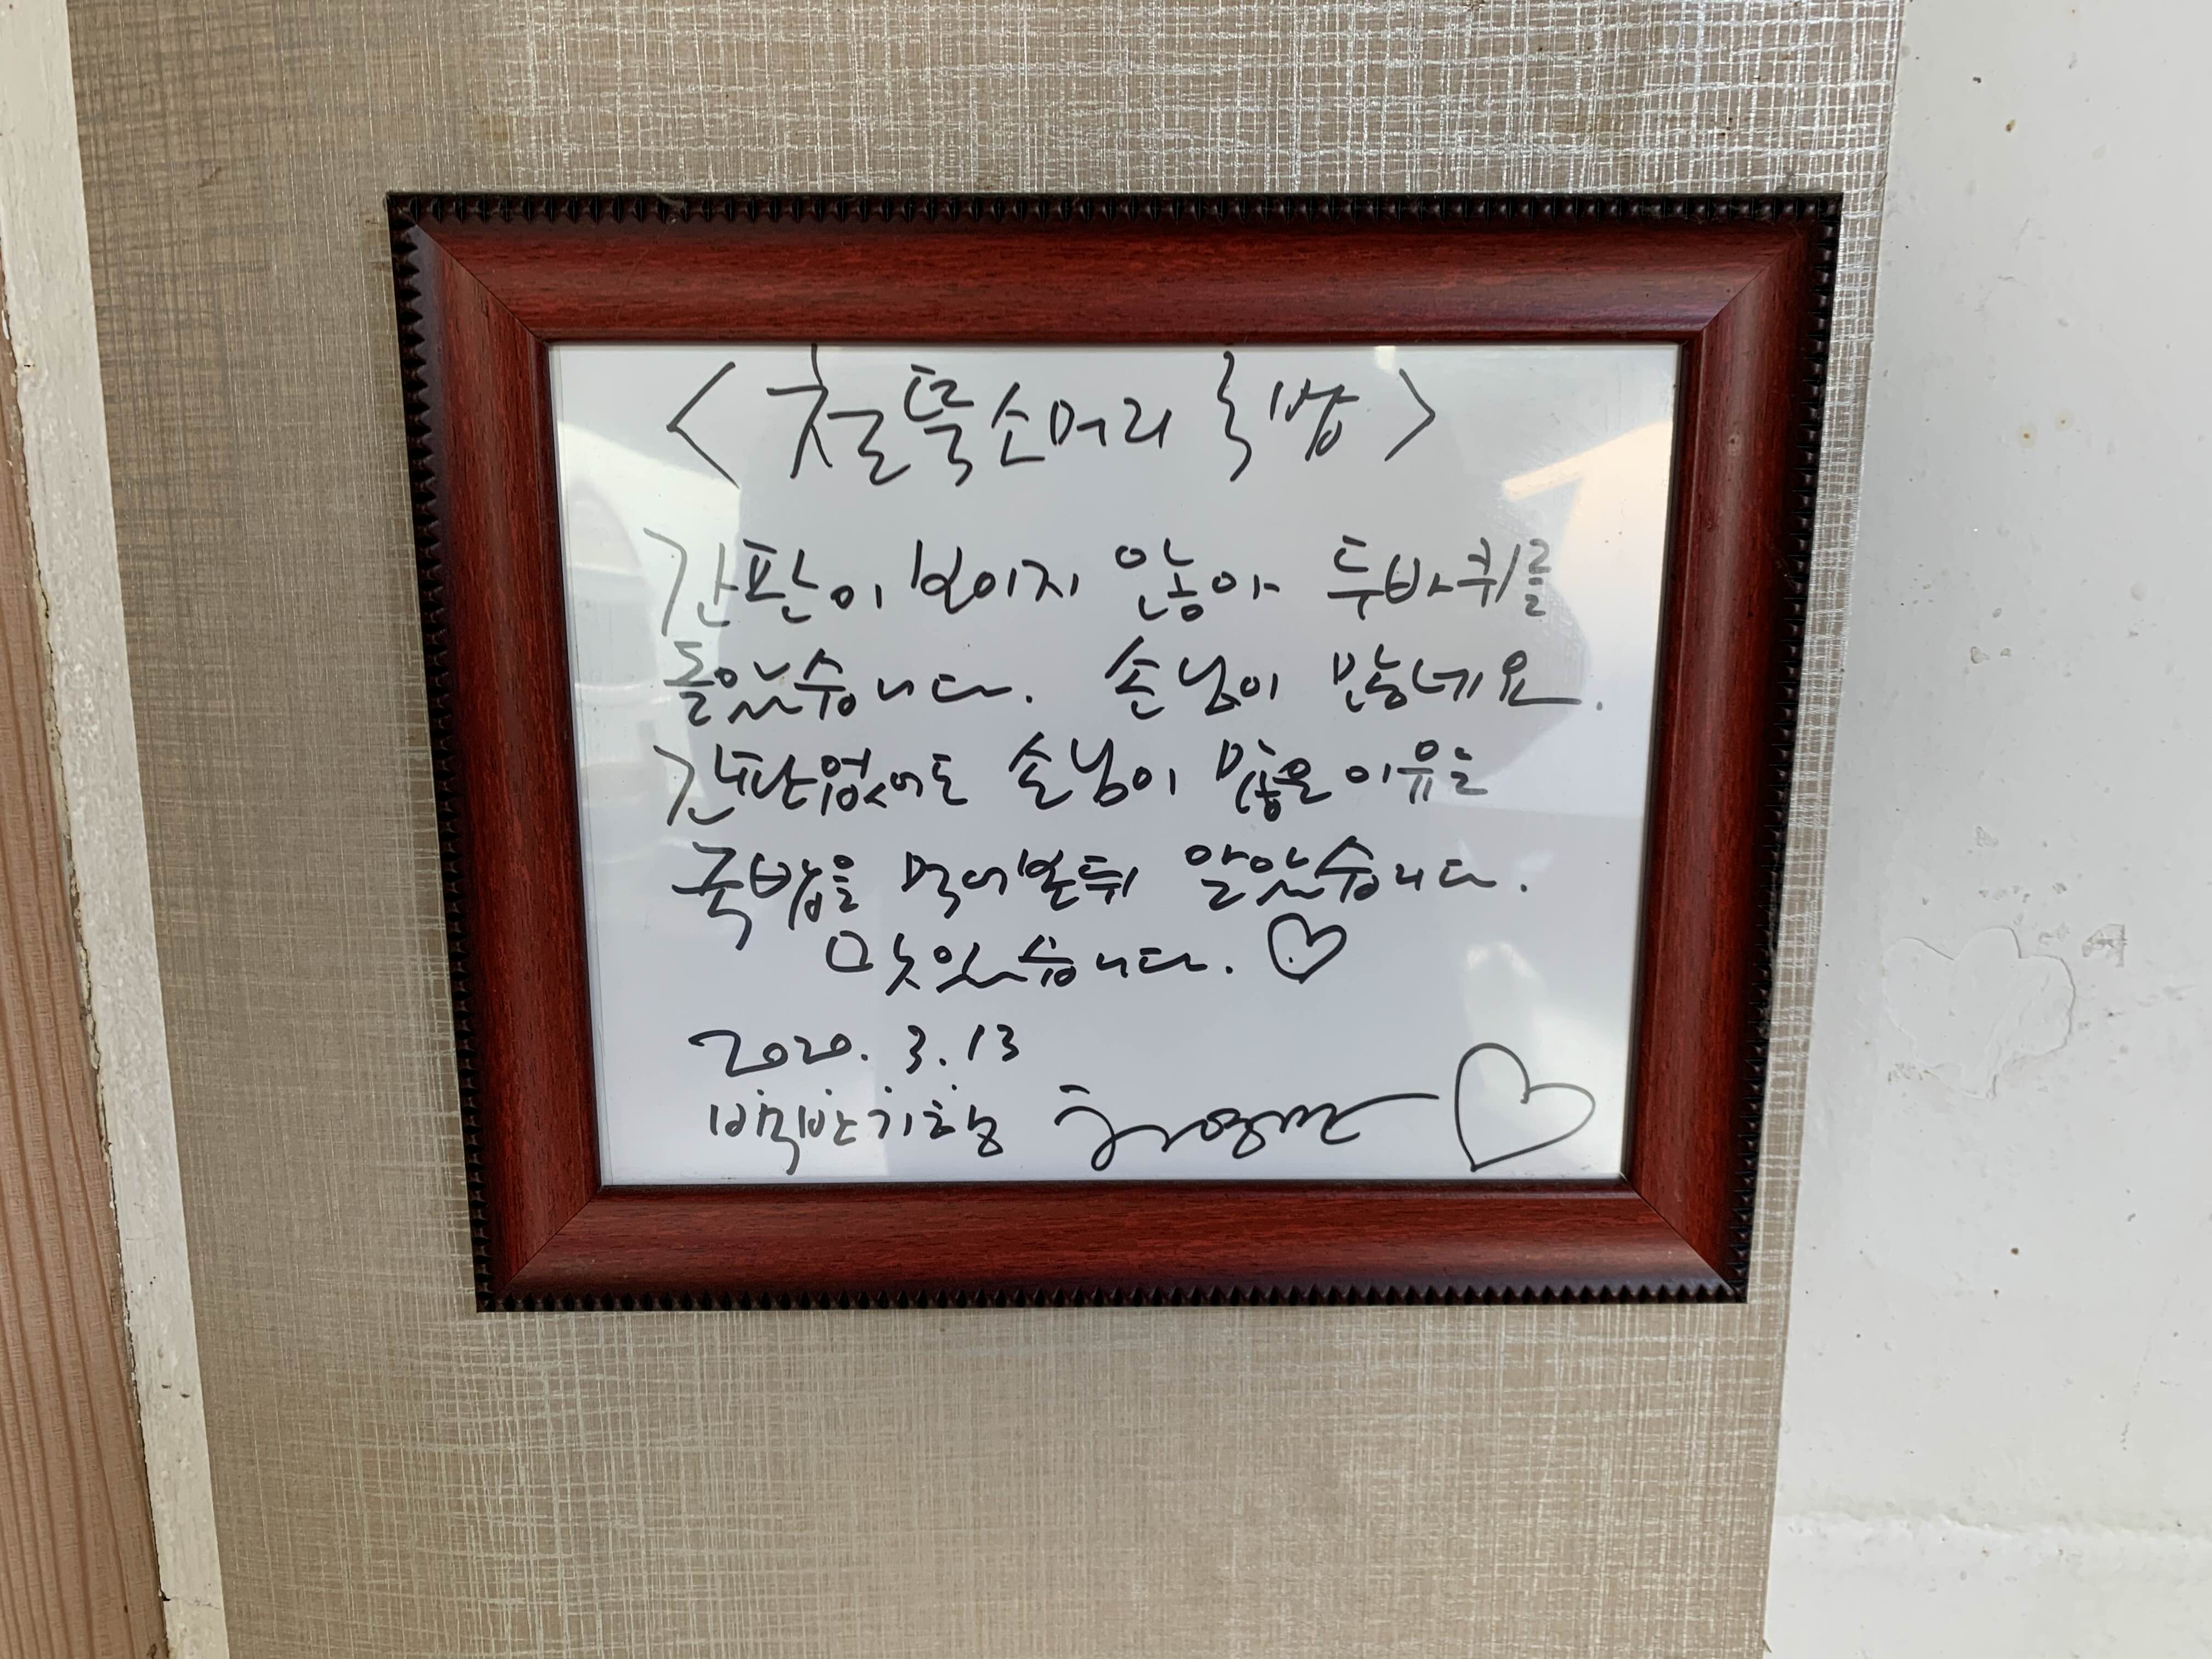 <철뚝소머리국밥>
간판이 보이지 않아 두바퀴를
돌았습니다. 손님이 많네요.
간판없어도 손님이 많은 이유를
국밥을 먹어본뒤 알았습니다.
맛있습니다. ♡
2020. 3. 13
백반기행 허영만 ♡